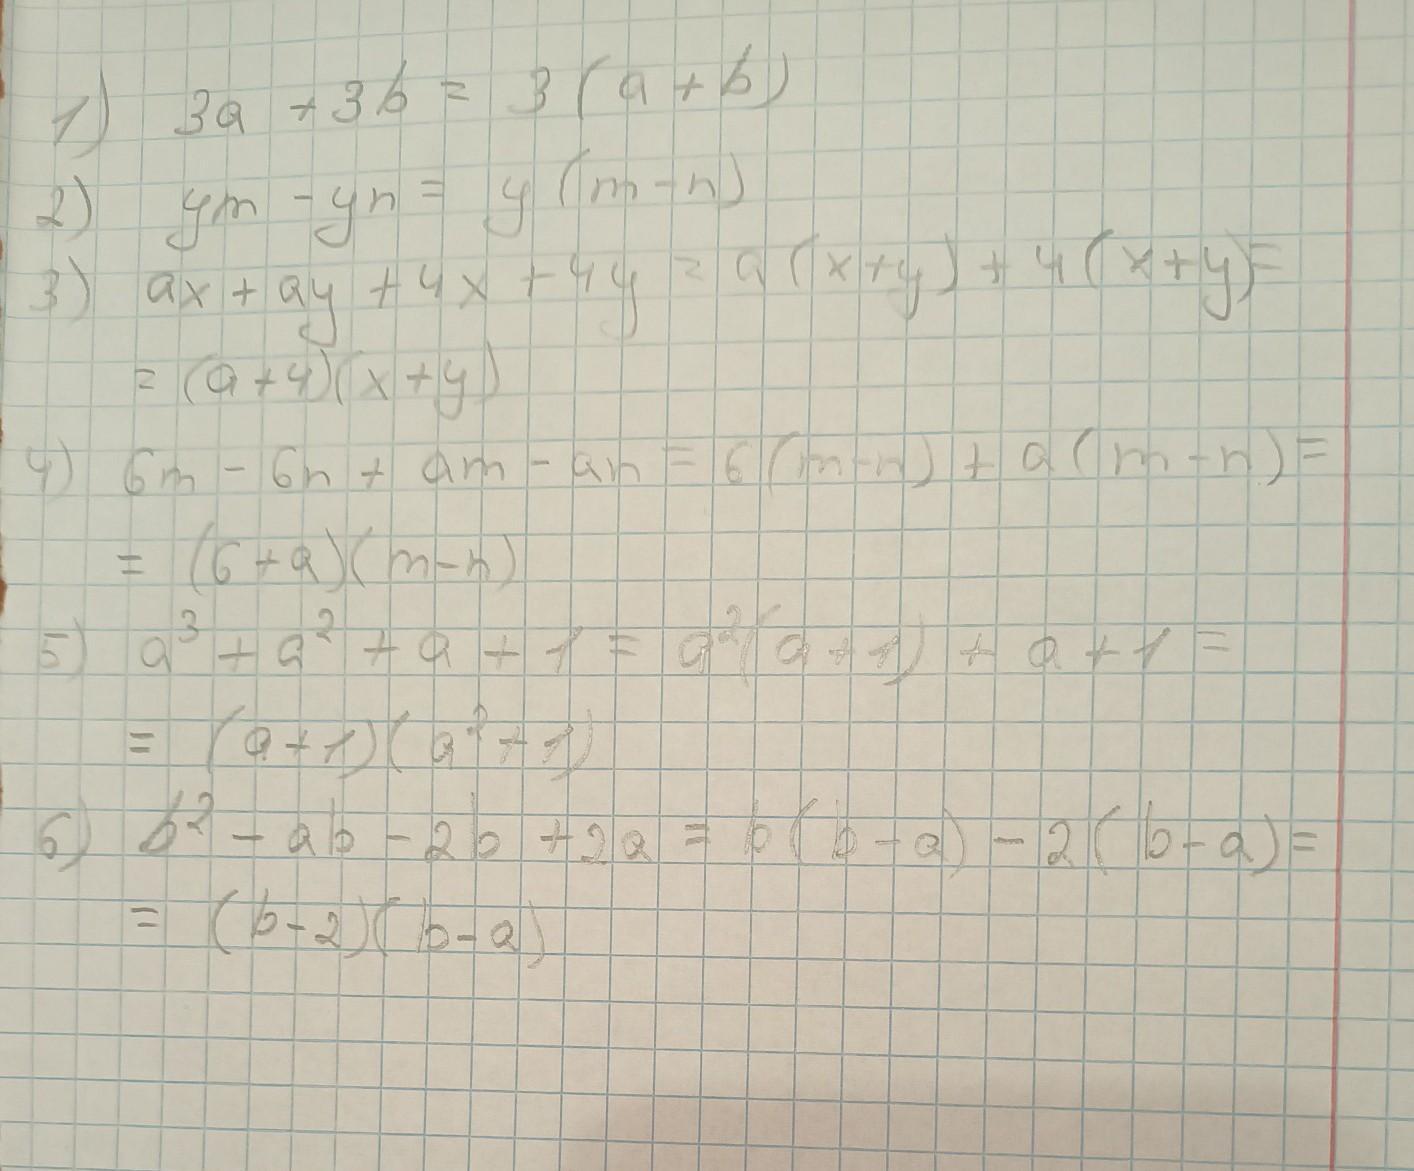 1) 3a + 3b = 3(a+b)
2) ym - yn = y(m-n)
3) ax + ay + 4x + 4y = a(x+y) + 4(x+y) =
= (a+4)(x+y)
4) 6m - 6n + am - an = 6(m-n) + a(m-n) =
= (6+a)(m-n)
5) a³ + a² + a + 1 = a²(a+1) + a + 1 =
= (a+1)(a²+1)
6) b² - ab - 2b + 2a = b(b-a) - 2(b-a) =
= (b-2)(b-a)